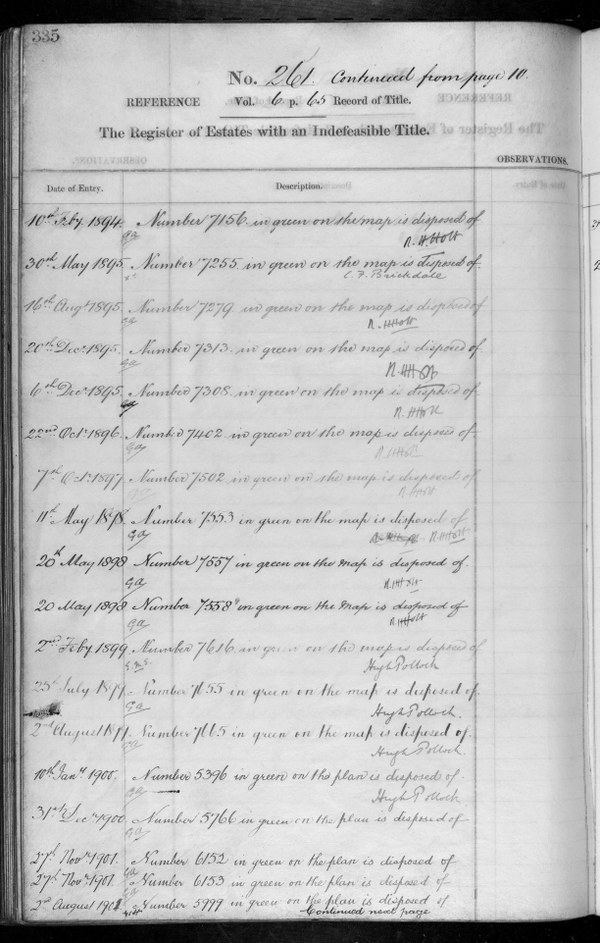 335
No. 261. Continued from page 10.
REFERENCE Vol. 6 p. 65 Record of Title.
The Register of Estates with an Indefeasible Title.
OBSERVATIONS.
Date of Entry. Description.
10th Feby 1894. Number 7156 in green on the map is disposed of
R. H. Holt
30th May 1895. Number 7255 in green on the map is disposed of.
C. F. Brickdale
16th Augt 1895. Number 7279 in green on the map is disposed of
R. H. Holt
20th Decr 1895. Number 7313 in green on the map is disposed of.
R. H. Holt
6th Decr 1895. Number 7308 in green on the map is disposed of
R. H. Holt
22nd Octr 1896. Number 7402 in green on the map is disposed of
R. H. Holt
7th Octr 1897. Number 7502 in green on the map is disposed of
R. H. Holt
11th May 1898. Number 7553 in green on the map is disposed of
GA R. H. Holt
20th May 1898 Number 7557 in green on the map is disposed of.
GA R. H. Holt
20 May 1898 Number 7558 in green on the map is disposed of
GA R. H. Holt
2nd Feby 1899. Number 7616 in green on the map is disposed of
Hugh Pollock
25th July 1899. Number 7655 in green on the map is disposed of.
GA Hugh Pollock.
2nd August 1899. Number 7665 in green on the map is disposed of.
Hugh Pollock.
10th Jany 1900. Number 5396 in green on the plan is disposed of.
GA Hugh Pollock
31st Decr 1900. Number 5766 in green on the plan is disposed of
GA
27th Novr 1901. Number 6152 in green on the plan is disposed of
GA
27th Novr 1901. Number 6153 in green on the plan is disposed of.
GA
2nd August 1901 Number 5999 in green on the plan is disposed of
Continued next page